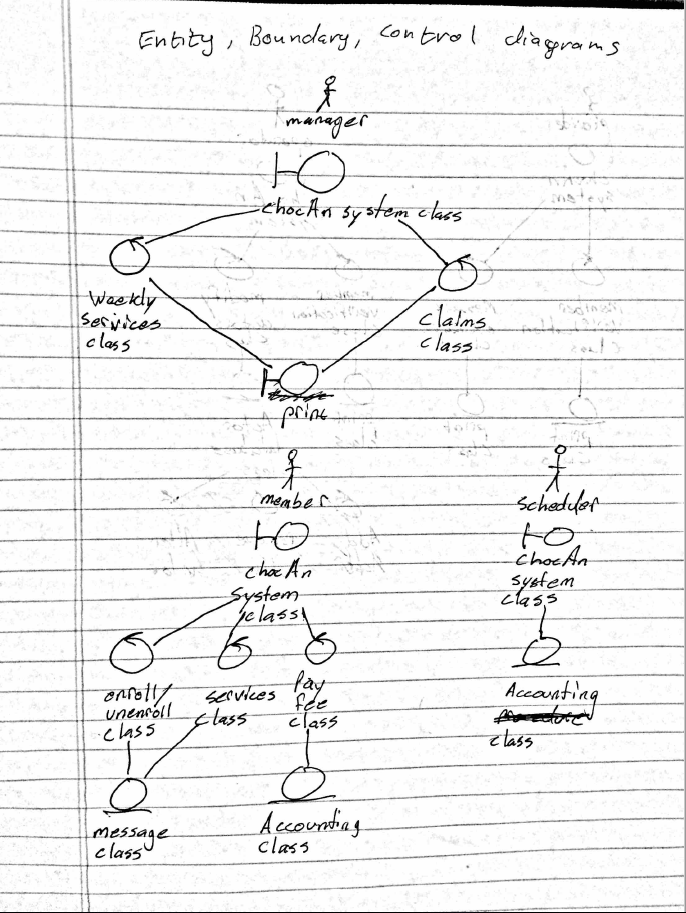 Entity, Boundary, Control diagrams
manager
chocAn system class
Weekly
services
class
Claims
class
print
member
chocAn
system
class
enroll/
unenroll
class
services
class
Pay
fee
class
message
class
Accounting
class
scheduler
chocAn
system
class
Accounting
class